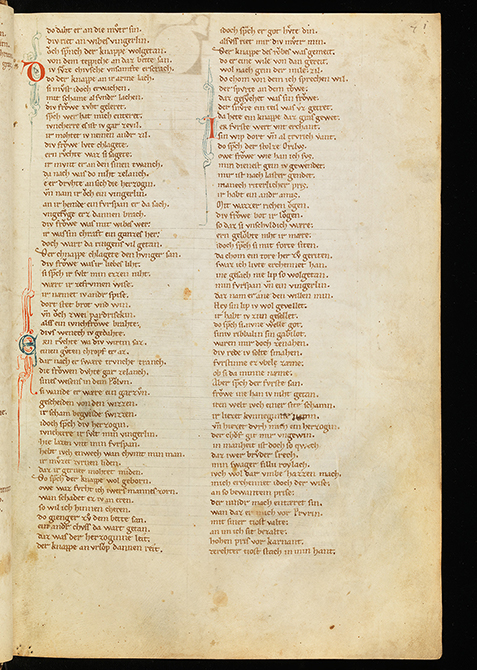 do daht er an die mv̊t sin.
div riet an wibes vingerlin.
ovch spranch der knappe wolgetan.
von dem teppiche an daz bette san.
Div sv̊ze chivsche vnsamfte erschrach.
do der knappe an ir arme lach.
si mv̊st idoch erwachen.
mit schame al svnder lachen.
div frowe zvht geleret.
sprach wer hat mich enteret.
ivnchherre es ist iv gar zevil.
ir mohtet iv nemen ander zil.
div frowe lvte chlagete.
ern rv̊chte waz si sagete.
ir mvnt er an den sinen twanch.
da nach was do niht zelanch.
er drvhte an sich die herzogin.
vñ nam ir och ein vingerlin.
an ir hemde ein fvrspan er da sach.
vngefv̊ge erz dannen brach.
div frowe was mit wibes wer.
ir was sin chraft ein ganzez her.
doch wart da ringens vil getan.
Der chnappe chlagete den hvnger san.
div frowe was ir libes lieht.
si sprach ir svlt min ezzen niht.
wært ir zefrvmen wise.
ir næmet iv ander spise.
dort stet brot vnd win.
vñ och zwei pardrisekin.
alss ein ivnchfrowe brahte.
divs wenech iv gedahte.
Ern rv̊chte wa div wirtin saz.
einen gv̊ten chropf er az.
dar nach er swære trvnche tranch.
die frowen dvhte gar zelanch.
sines wesens in dem Povlvn.
si wande er wære ein garzvn.
gescheiden von den wizzen.
ir scham begvnde swizzen.
idoch sprach div herzogin.
ivnchherre ir svlt min vingerlin.
hie lazen vnt min fvrspan.
hebt ivch enwech wan chvmt min man.
ir mv̊zet zvrnen liden.
daz ir gerner mohtet miden.
Do sprach der knappe wol geborn.
owe waz fvrht ich iwers mannes zorn.
wan schadet ez iv an eren.
so wil ich hinnen cheren.
do gienger zv̊ dem bette san.
ein ander chvs da wart getan.
daz was der herzoginne leit.
der knappe an vrlop dannen reit.
idoch sprach er got hv̊te din.
alsvs riet mir div mv̊ter min.
Der knappe des rovbes was gemeit.
do er eine wile von dan gereit.
wol nach gein der mile zil.
do chom von dem ich sprechen wil.
der spvrte an dem towe.
daz gesv̊chet was sin frowe.
der snv̊re ein teil was vz getret.
da hete ein knappe daz gras gewet.
Der fvrste wert vnt erchant.
sin wip dort vnder al trvrich vant.
do sprach der stolze Orilvs.
owe frowe wie han ich svs.
min dienest gein iv gewendet.
mir ist nach laster gendet.
manech riterlicher pris.
ir habt ein ander amis.
Mit wazzer richen ovgen.
div frowe bot ir lovgen.
so daz si vnschvldich wære.
ern gelovbte niht ir mære.
idoch sprach si mit forhte siten.
da chom ein tore her zv̊ geriten.
swaz ich livte erchennet han.
ine gesach nie lip so wolgetan.
min fvrspan vñ ein vingerlin.
daz nam er ane den willen min.
Hey sin lip iv wol gevellet.
ir habt iv zvm gesellet.
do sprach si nvne welle got.
siniv ribbalin sin gabilot.
waren mir doch zenahen.
div rede iv solte smahen.
fvrstinne ez vbele zæme.
ob si da minne næme.
Aber sprach der fvrste san.
frowe ine han iv niht getan.
irn welt ivch einer site schamn.
ir liezet kvneginne namn.
vñ hiezet dvrh mich ein herzogin.
der chovf git mir vngewin.
min manheit ist doch so qvech.
daz iwer brv̊der Erech.
min swager fillv roylach.
ivch wol dar vmbe hazzen mach.
mich erchennet idoch der wise.
an so bewantem prise.
der ninder mach entæret sin.
wan daz er mich vor Prvrin.
mit siner tiost valte.
an im ich sit bezalte.
hohen pris vor karnant.
zerehter tiost stach in min hant.